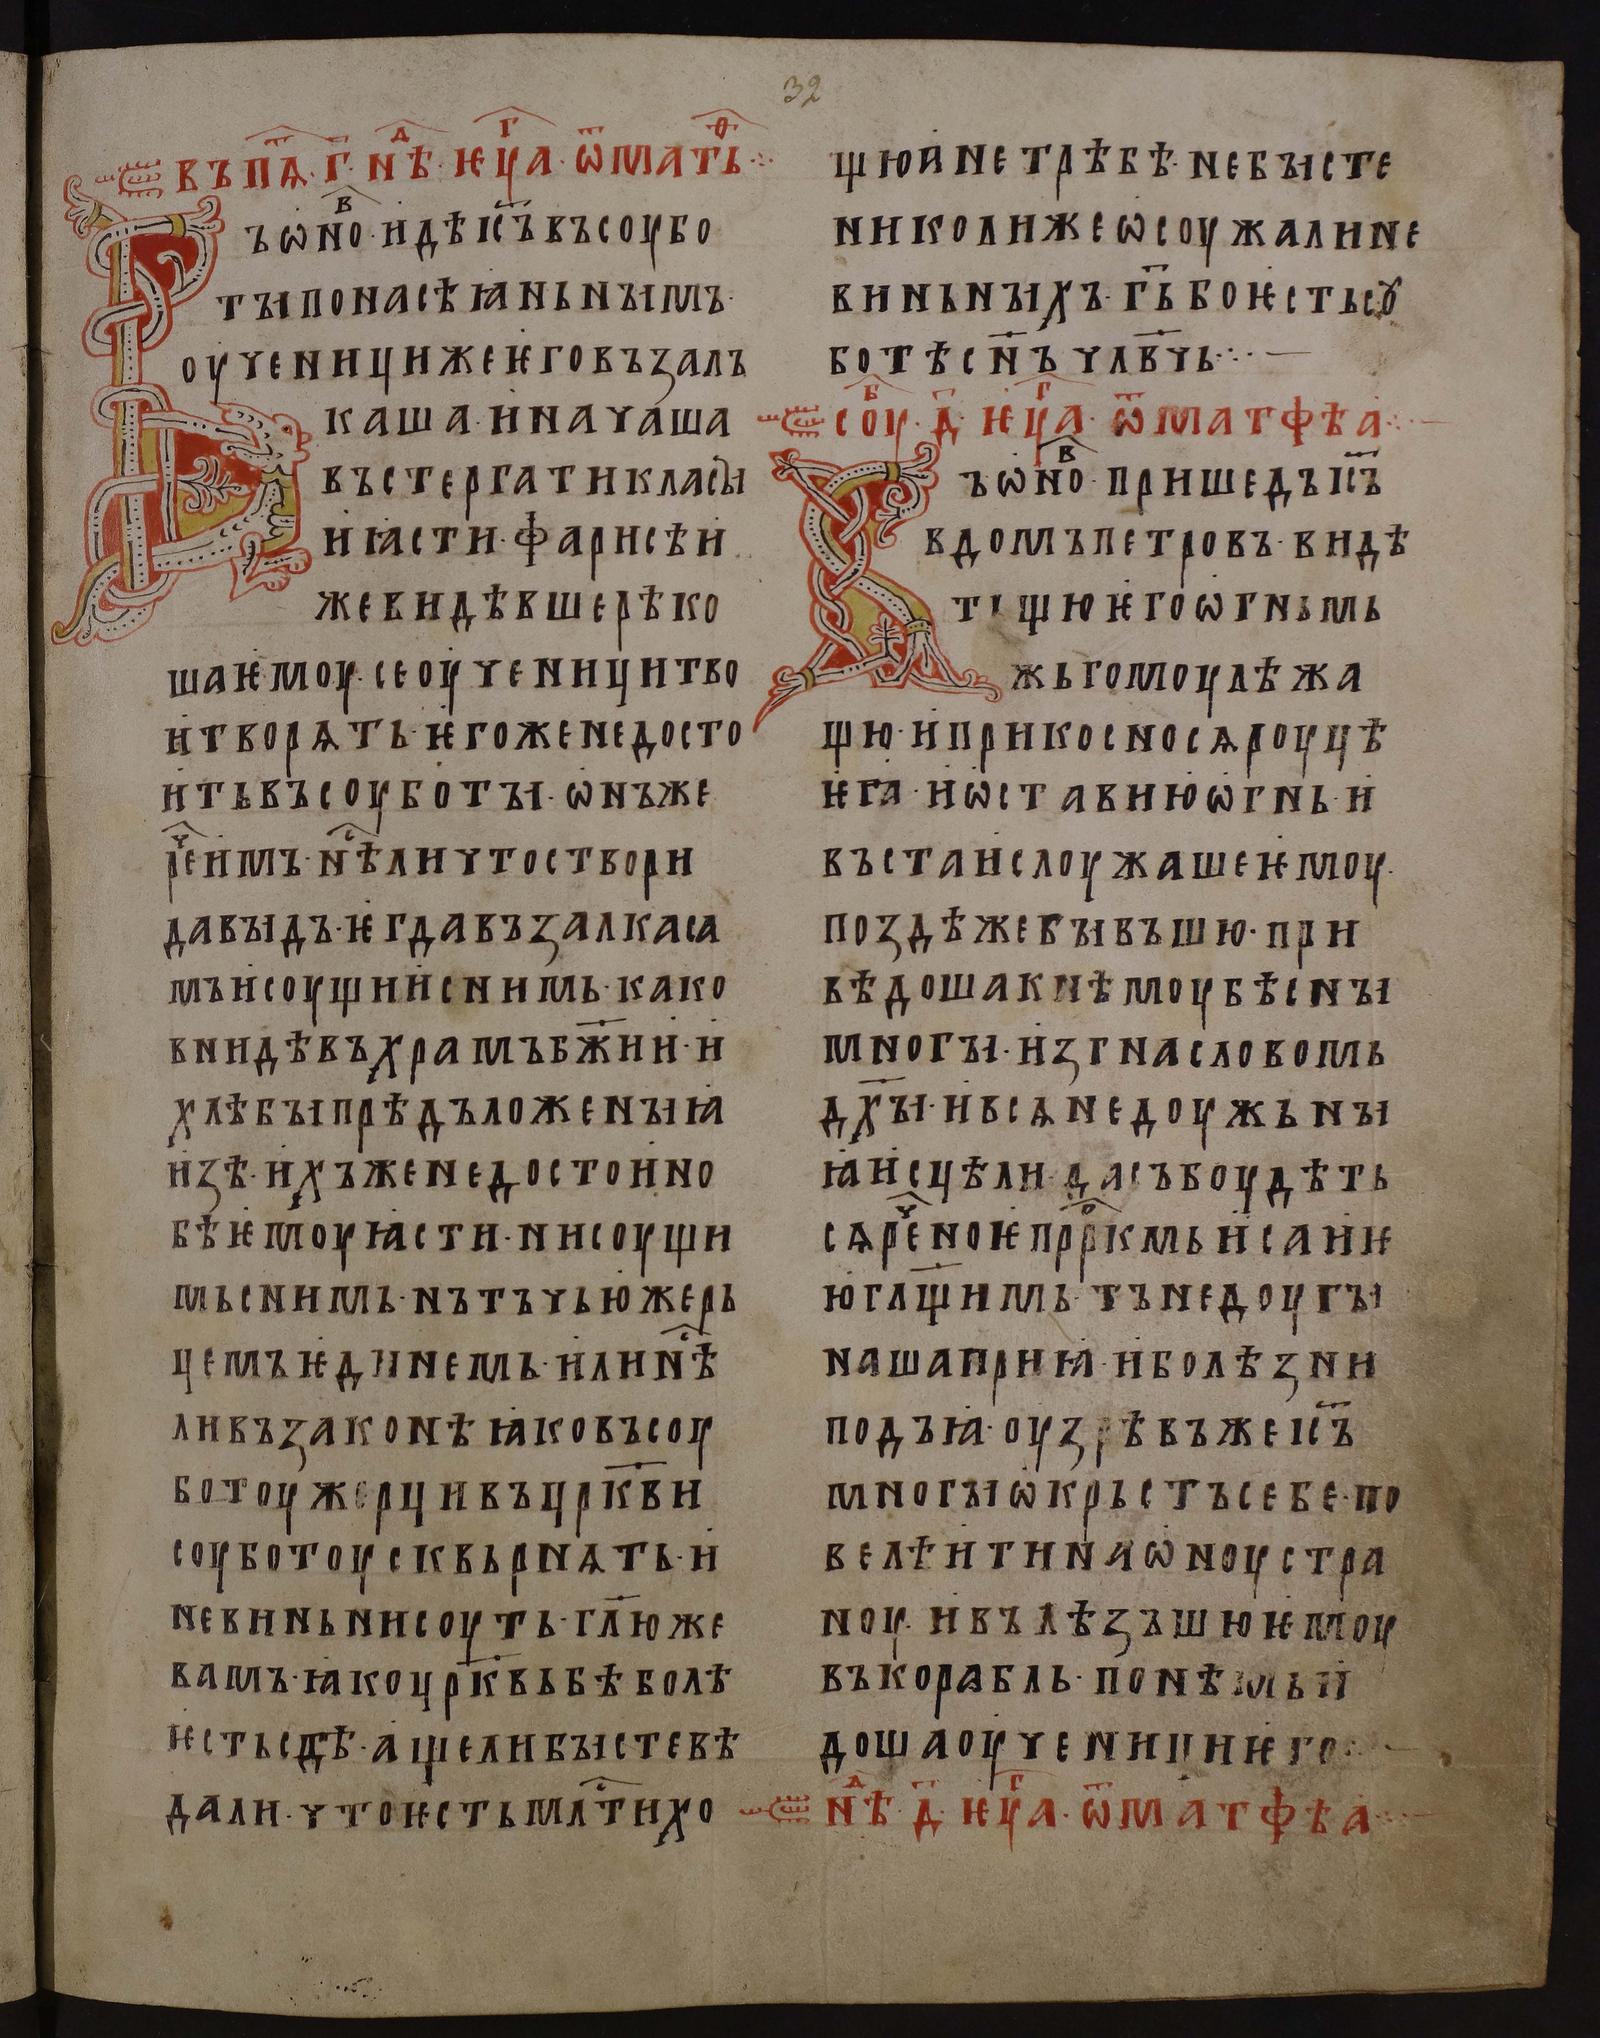 32
въ пѧ҃·г҃·нⷣѣ·ѥцⷢ҇а·ѿ матьѳ҇·:·
Въ ѡнⷡо·идѣ іс҃ъ въ соубо
ты по насѣꙗньнымъ·
оученици же ѥго възалъ
каша·и начаша
въстергати класы
и ꙗсти·фарисѣи
же видѣвше рѣко
ша ѥмоу·се оученици тво
и творѧть·ѥгоже не досто
ить въ соуботы·ѡнъ же
реⷱ имъ·нⷭѣ ли что створи
давыдъ·ѥгда възалка са
мъ и соущии с нимь·како
вниде въ храмъ бж҃ии·и
хлѣбы прѣдъложеныꙗ
изѣ·ихъже не достоино
бѣ ѥмоу ꙗсти·ни соущи
мъ с нимь·нъ тъчью жерь
цемъ ѥдинемь·или нⷭѣ
ли въ законѣ ꙗко въ соу
ботоу жерци въ црк҃ви
соуботоу сквьрнѧть·и
невиньни соуть·гл҃ю же
вамъ·ꙗко црк҃вь бѣ болѣ
ѥсть сдѣ·аще ли бысте вѣ
дали·что ѥсть млⷭ҇ти хо
щю и не трѣбѣ·не бысте
николиже ѡсоужали не
виньныхъ·гь҃ бо ѥсть соу
ботѣ сн҃ъ члв҃чь·:·—
соуⷠ·д҃·ѥцⷢ҇а·ѿ матфѣа·:·—
Въ ѡнⷡо·пришедъ іс҃ъ
в домъ петровъ·видѣ
тьщю ѥго ѡгньмь
жьгомоу лѣжа
щю·и прикосносѧ роуцѣ
ѥга·и ѡстави ю ѡгнь·и
въста и слоужаше ѥмоу·
поздѣ же бывъшю·при
вѣдоша к нѣмоу бѣсны
многы·изгна словомь
дх҃ы·и всѧ недоужьны
ꙗ исцѣли·да събоудѣть
сѧ реⷱноѥ прⷪркмь исаиѥ
ю гл҃щимь·тъ недоугы
наша приꙗ·и болѣзни
подъꙗ·оузрѣвъ же іс҃ъ
многы ѡкрьстъ себе·по
велѣ ити на ѡноу стра
ноу·и вълѣзъшю ѥмоу
въ корабль·по нѣмь и
доша оученици ѥго·:·—
нⷣѣ·д҃·ѥцⷢ҇а·ѿ матфѣа·:·—